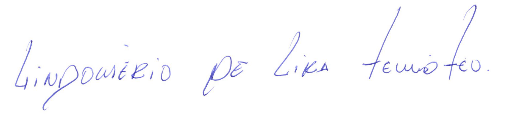 Lindomério de Lira Temóteo.